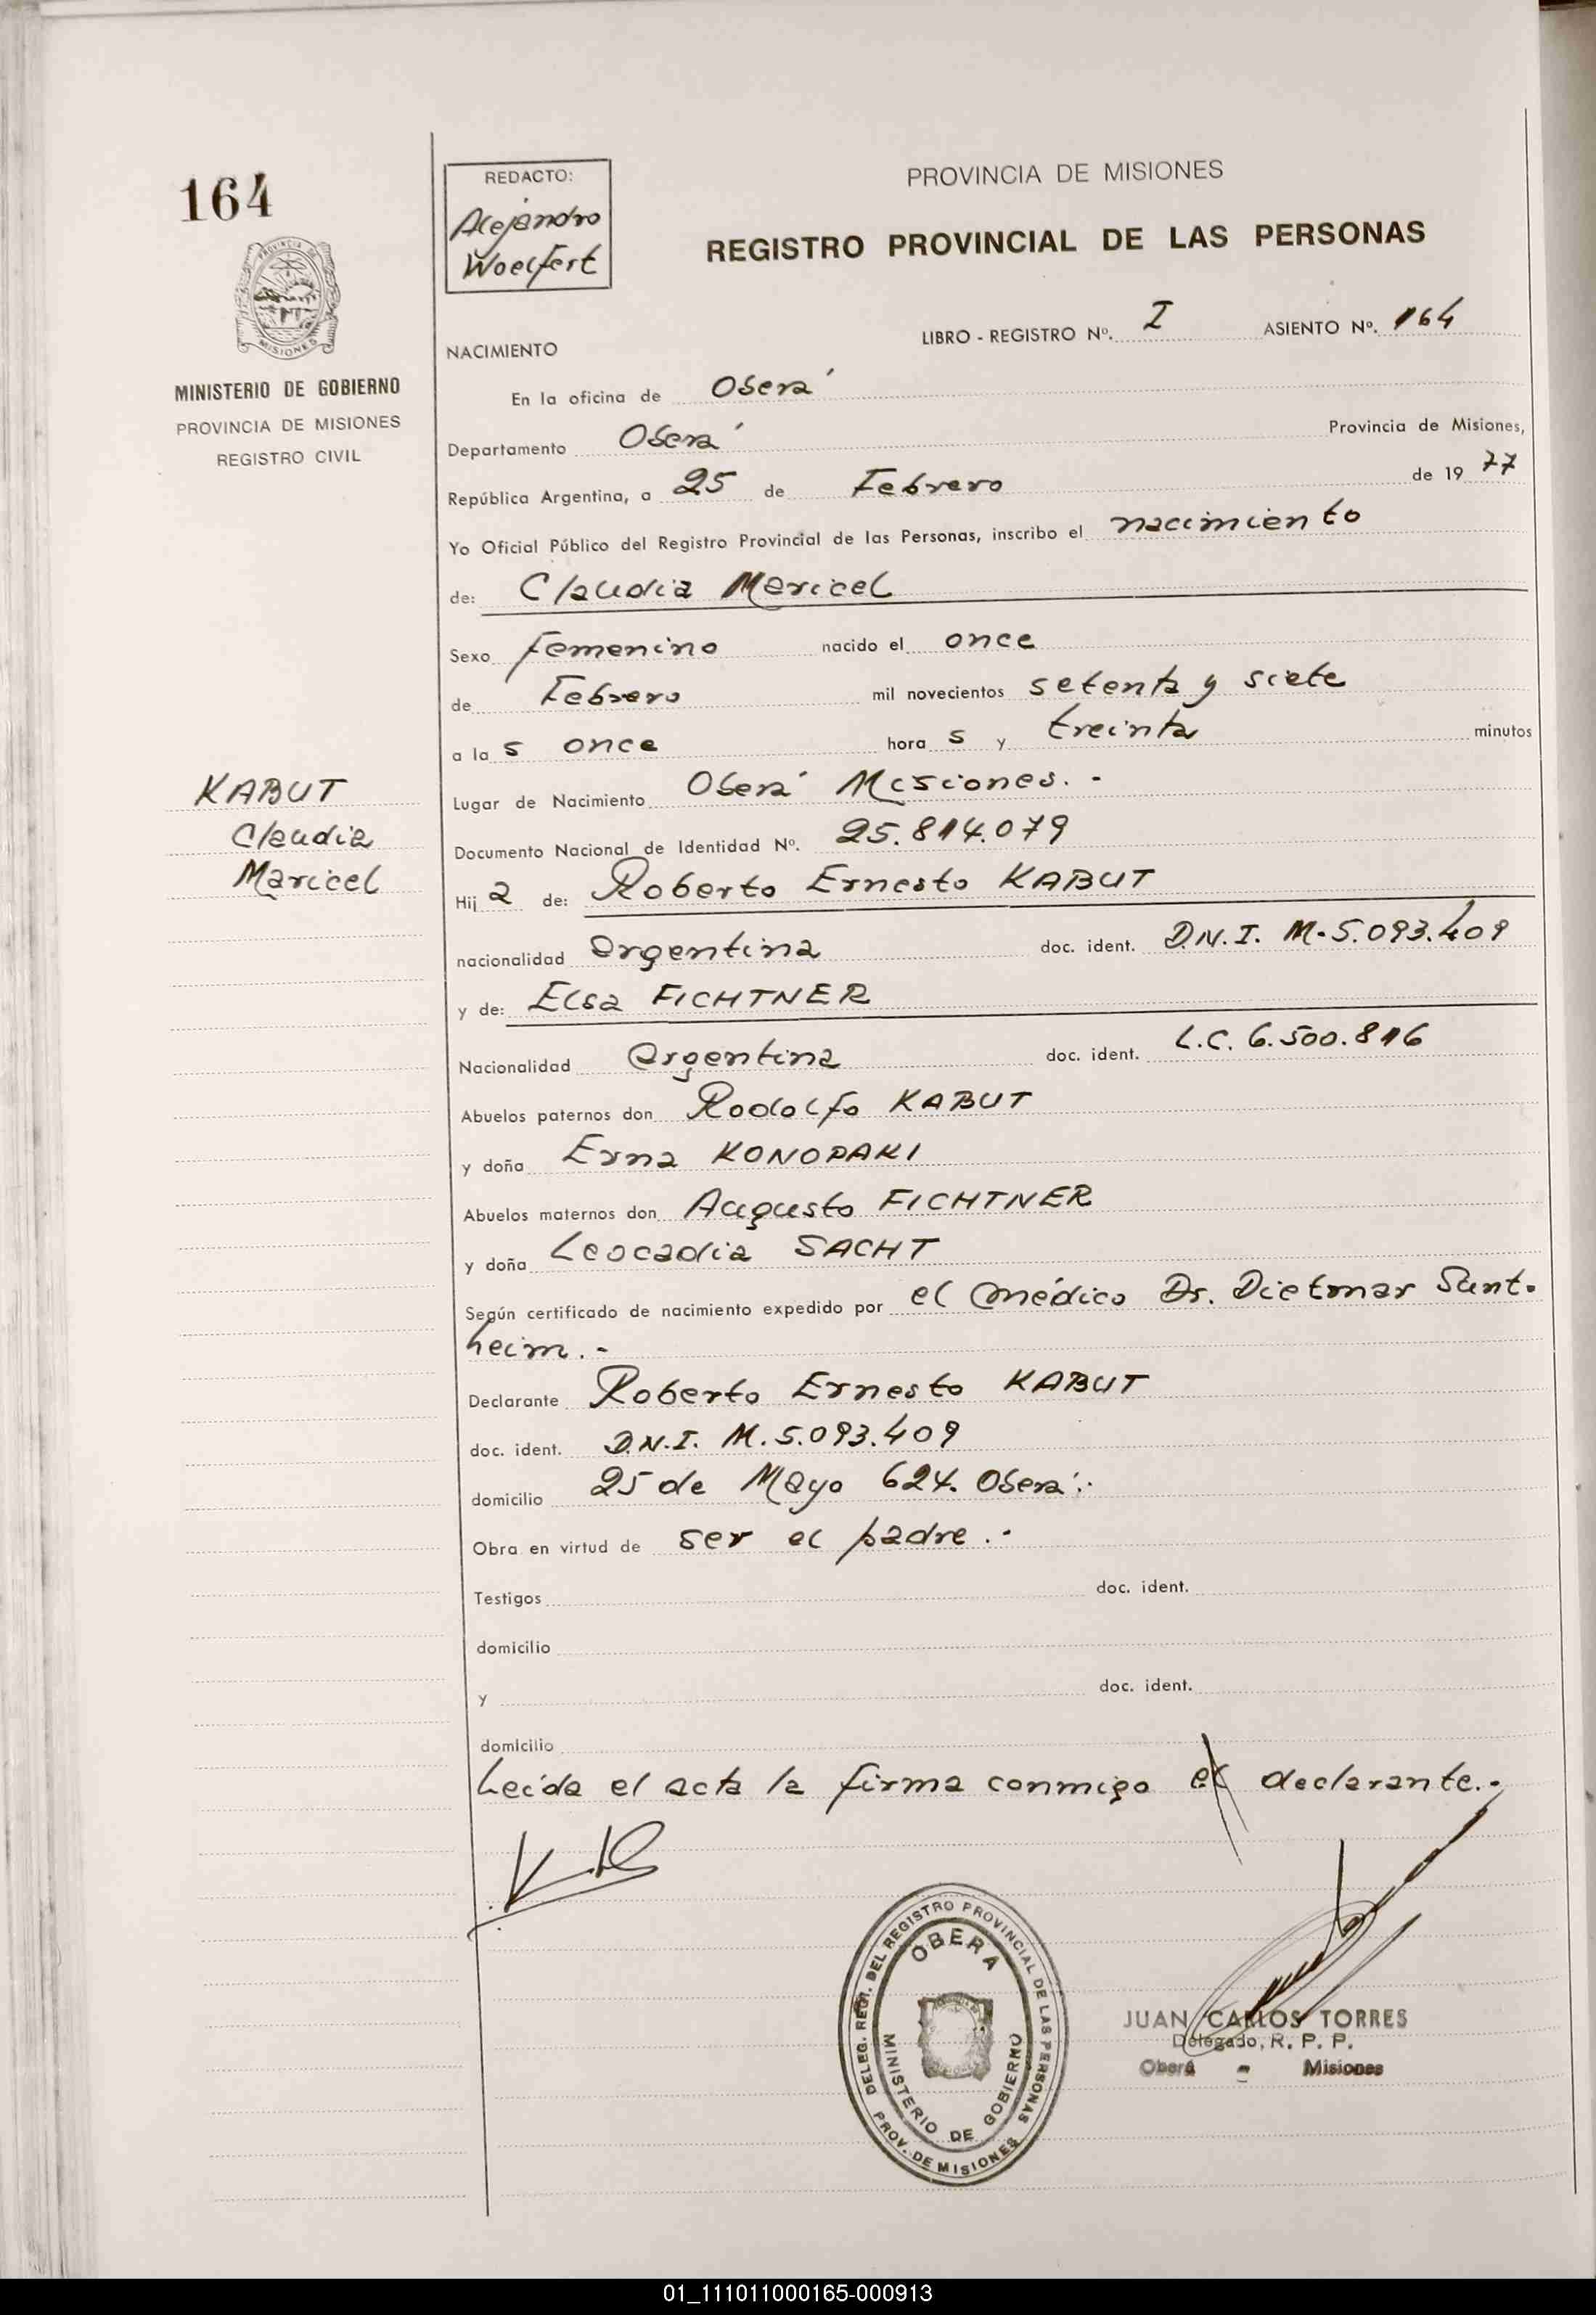 164
PROVINCIA DE MISIONES
MINISTERIO DE GOBIERNO
PROVINCIA DE MISIONES
REGISTRO CIVIL
REDACTO:
Alejandro
Woelfert
PROVINCIA DE MISIONES
REGISTRO PROVINCIAL DE LAS PERSONAS
LIBRO - REGISTRO Nº. I ASIENTO Nº. 164
NACIMIENTO
En la oficina de Oberá
Departamento Oberá Provincia de Misiones,
República Argentina, a 25 de Febrero de 19 77
Yo Oficial Público del Registro Provincial de las Personas, inscribo el nacimiento
de: Claudia Maricel
Sexo femenino nacido el once
de Febrero mil novecientos setenta y siete
a la s once hora s y treinta minutos
Lugar de Nacimiento Oberá Misiones. -
KABUT
Claudia
Maricel
Documento Nacional de Identidad Nº. 25.814.079
Hij a de: Roberto Ernesto KABUT
nacionalidad argentina doc. ident. D.N.I. M-5.093.409
y de: Elsa FICHTNER
Nacionalidad argentina doc. ident. L.C. 6.500.816
Abuelos paternos don Rodolfo KABUT
y doña Erna KONOPAKI
Abuelos maternos don Augusto FICHTNER
y doña Leocadia SACHT
Según certificado de nacimiento expedido por el médico Dr. Dietmar Sunt-
heim.-
Declarante Roberto Ernesto KABUT
doc. ident. D.N.I. M.5.093.409
domicilio 25 de Mayo 624. Oberá.-
Obra en virtud de ser el padre.-
Testigos doc. ident.
domicilio
y doc. ident.
domicilio
Leída el acta la firma conmigo el declarante.-
DELEG. REGI. DEL REGISTRO PROVINCIAL DE LAS PERSONAS
PROV. DE MISIONES
OBERA
MINISTERIO DE GOBIERNO
JUAN CARLOS TORRES
Delegado, R. P. P.
Oberá - Misiones
01_111011000165-000913